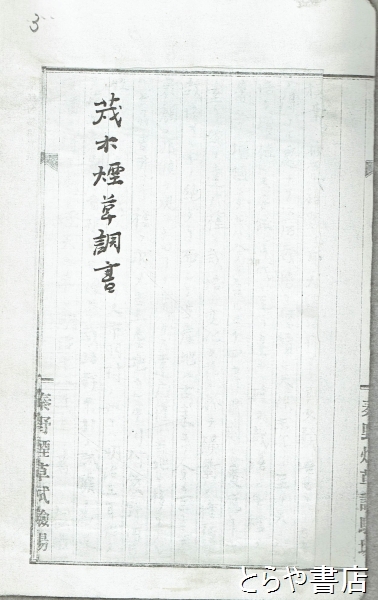 3
茂木煙草調書
秦野煙草試驗場
秦野煙草試驗場
とらや書店